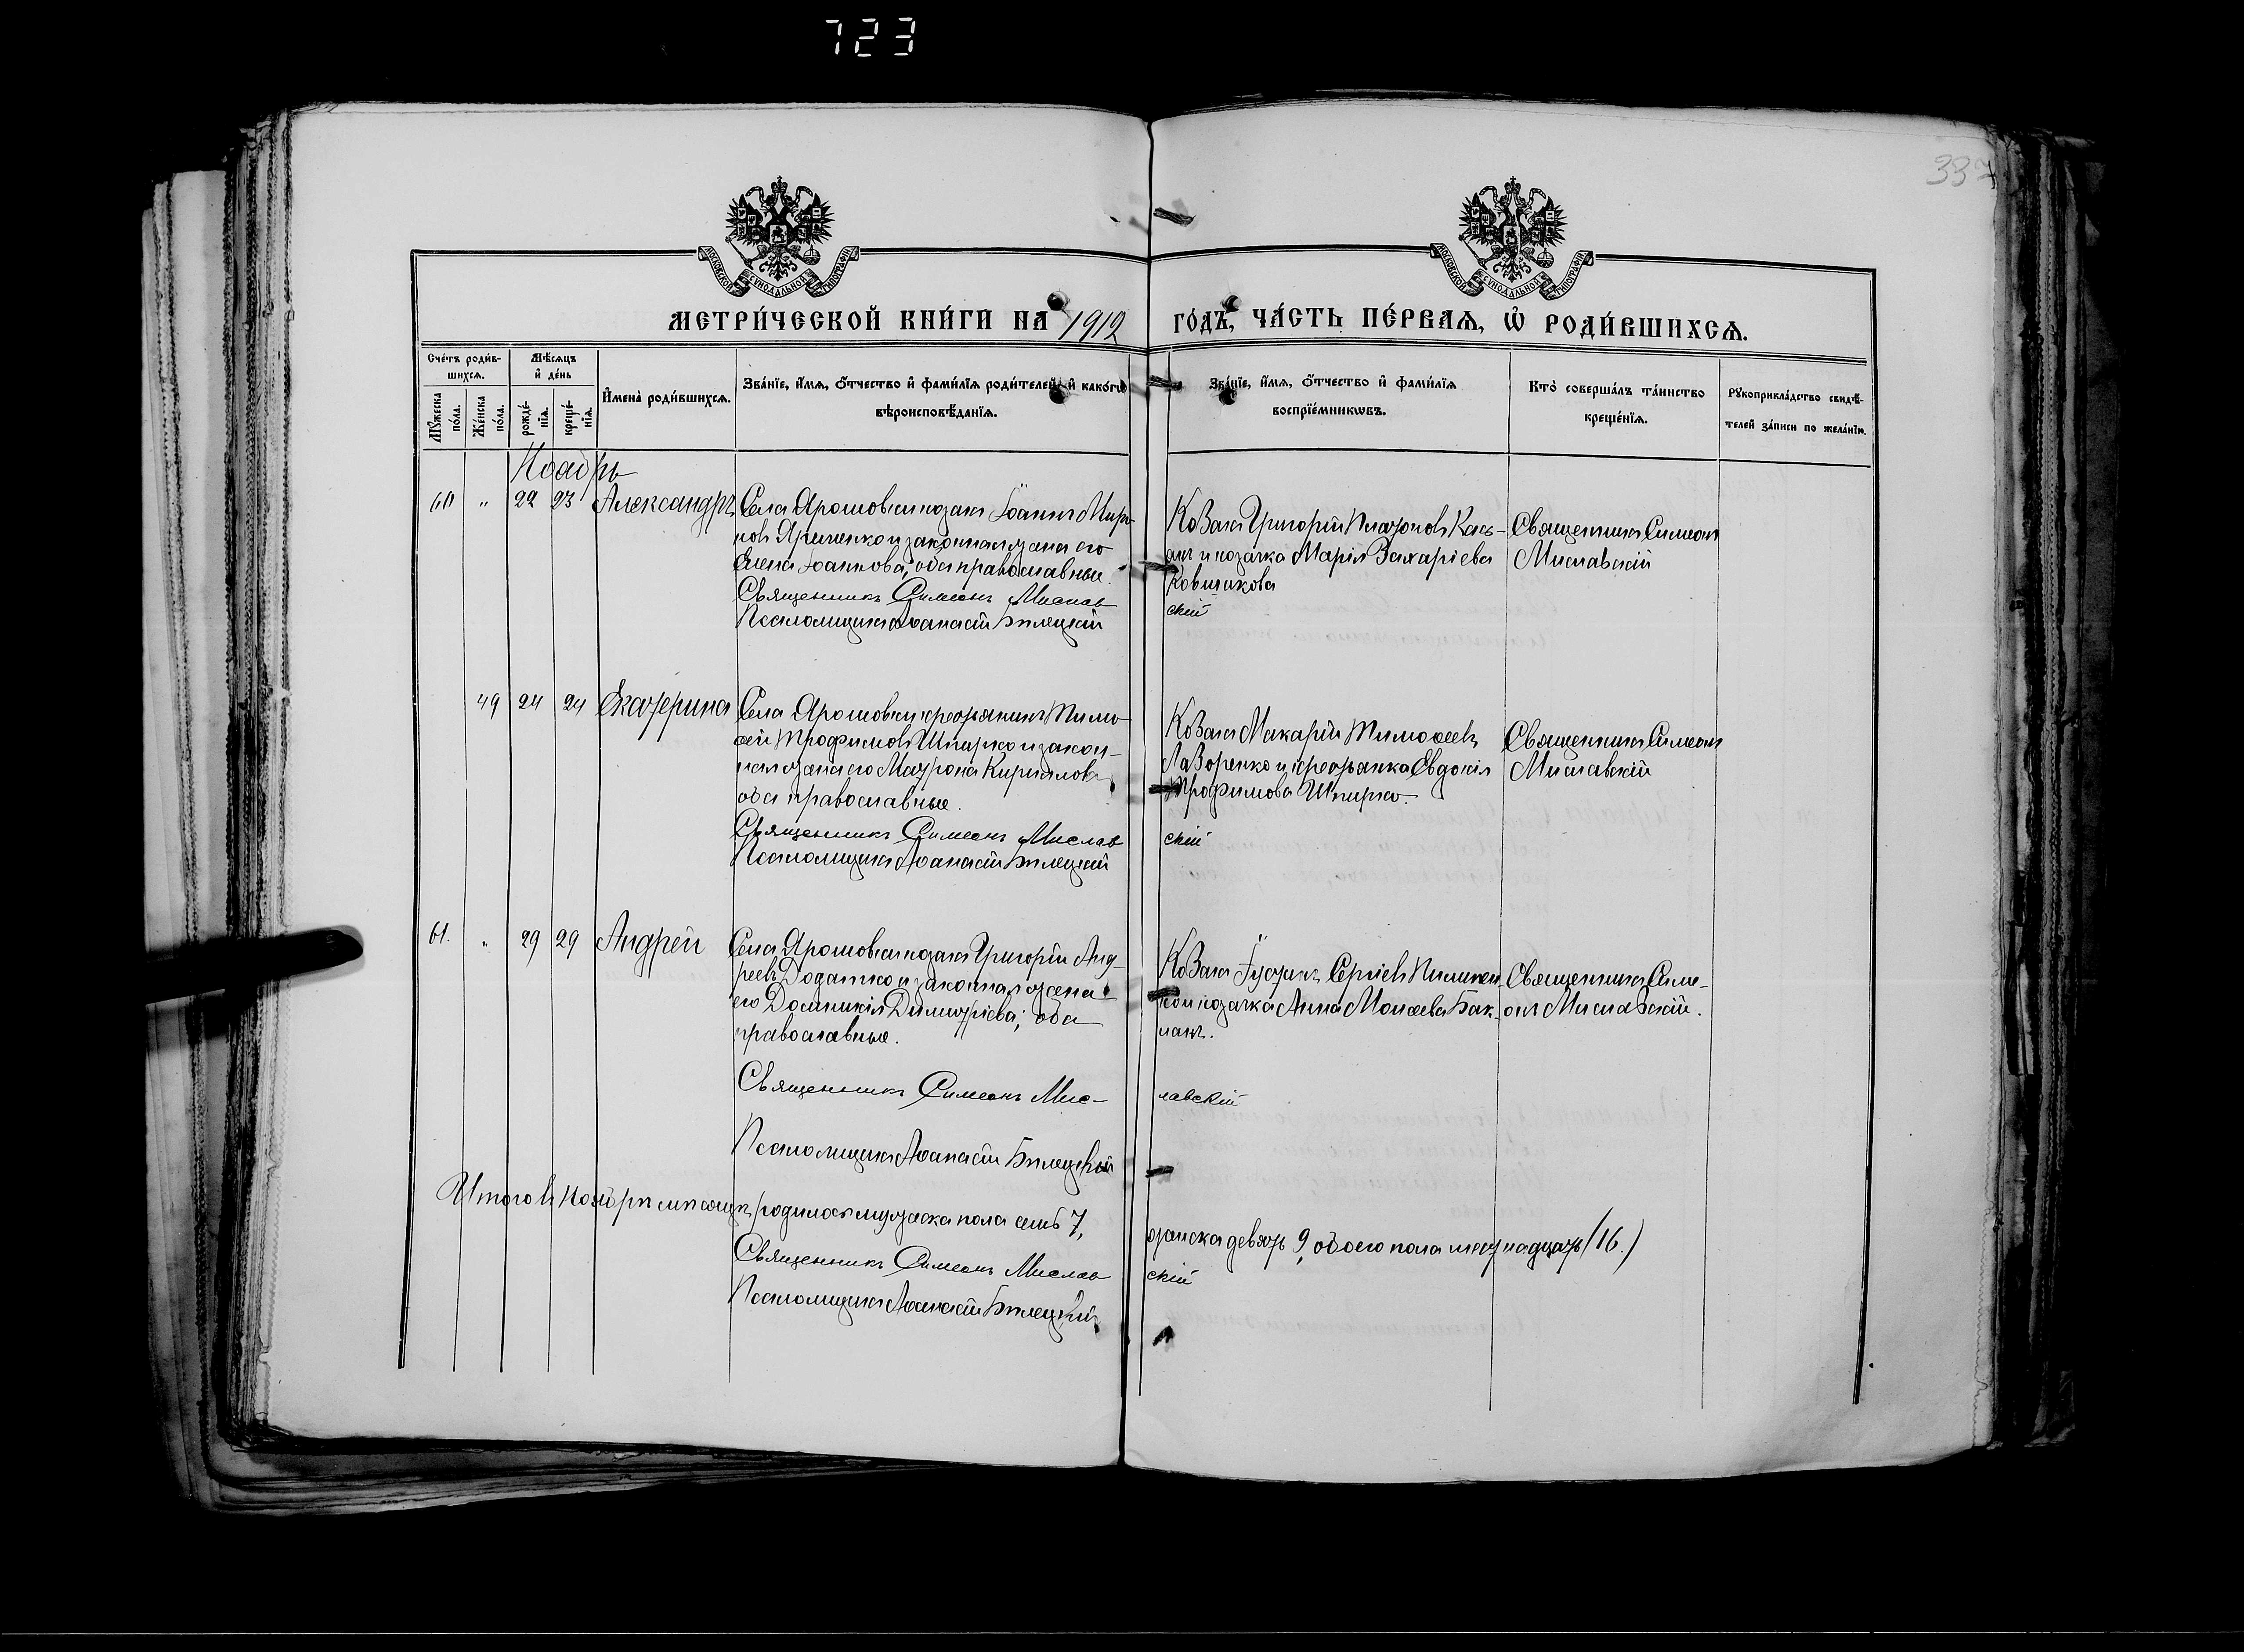 723
337
МОСКОВСКОЙ СУНОДАЛЬНОЙ ТИПОГРАФІИ
МОСКОВСКОЙ СУНОДАЛЬНОЙ ТИПОГРАФІИ
МЕТРИ́ЧЕСКОЙ КНИ́ГИ НА 1912 ГО́ДЪ, ЧА́СТЬ ПЕ́РВАѦ, Ѡ҆ РОДИ́ВШИХСѦ.
Сче́тъ роди́в-
шихсѧ.
Мꙋ́жеска по́ла.
Же́нска по́ла.
Мѣ́сѧцъ и҆ де́нь
рожде́-
нїѧ.
креще́-
нїѧ.
И҆мена̀ роди́вшихсѧ.
Зва́нїе, и҆́мѧ, ѻ҆́тчество и҆ фами́лїѧ роди́телей, и҆ како́гѡ
вѣроисповѣ́данїѧ.
Зва́нїе, и҆́мѧ, ѻ҆́тчество и҆ фами́лїѧ
воспрїе́мникѡвъ.
Кто̀ соверша́лъ та́инство
креще́нїѧ.
Рꙋкоприкла́дство свидѣ́-
телей за́писи по жела́нїю.
Ноябрь
60 " 22 23 Александръ
Села Ярошовки козакъ Іоаннъ Миро-
новъ Яременко и законная жена его
Елена Іоаннова, оба православные.
Священникъ Симеонъ Мислав
ский
Псаломщикъ Аѳанасій Билецкій
Козакъ Григорій Платоновъ
и козачка Марія Захаріева
Священникъ Симеонъ
Миславскій
49 24 24 Екатерина
Села Ярошовки крестьянинъ Тимо-
ѳей Трофимовъ Шпирко и закон-
ная жена его Матрона Кириллова,
оба православные.
Священникъ Симеонъ Мислав
скій
Псаломщикъ Аѳанасій Билецкій
Козакъ Макарій Тимоѳеевъ
Лазоренко и крестьянка Евдокія
Трофимова Шпирко.
Священникъ Симеонъ
Миславскій
61. " 29 29 Андрей
Села Ярошовки козакъ Григорій Анд-
реевъ Додатко и законная жена
его Домникія Димитріева; оба
православные.
Священникъ Симеонъ Мис-
лавскій
Псаломщикъ Аѳанасій Билецкій
Козакъ Іустинъ Сергіевъ Пилипен-
ко и козачка Анна Моисеева Бак-
ланъ.
Священникъ Симе-
онъ Миславскій.
Итого въ ноябрѣ мѣсяцѣ родилось мужеска пола семь 7, женска девять 9, обоего пола шестнадцать (16.)
Священникъ Симеонъ Мислав
скій
Псаломщикъ Аѳанасій Билецкій